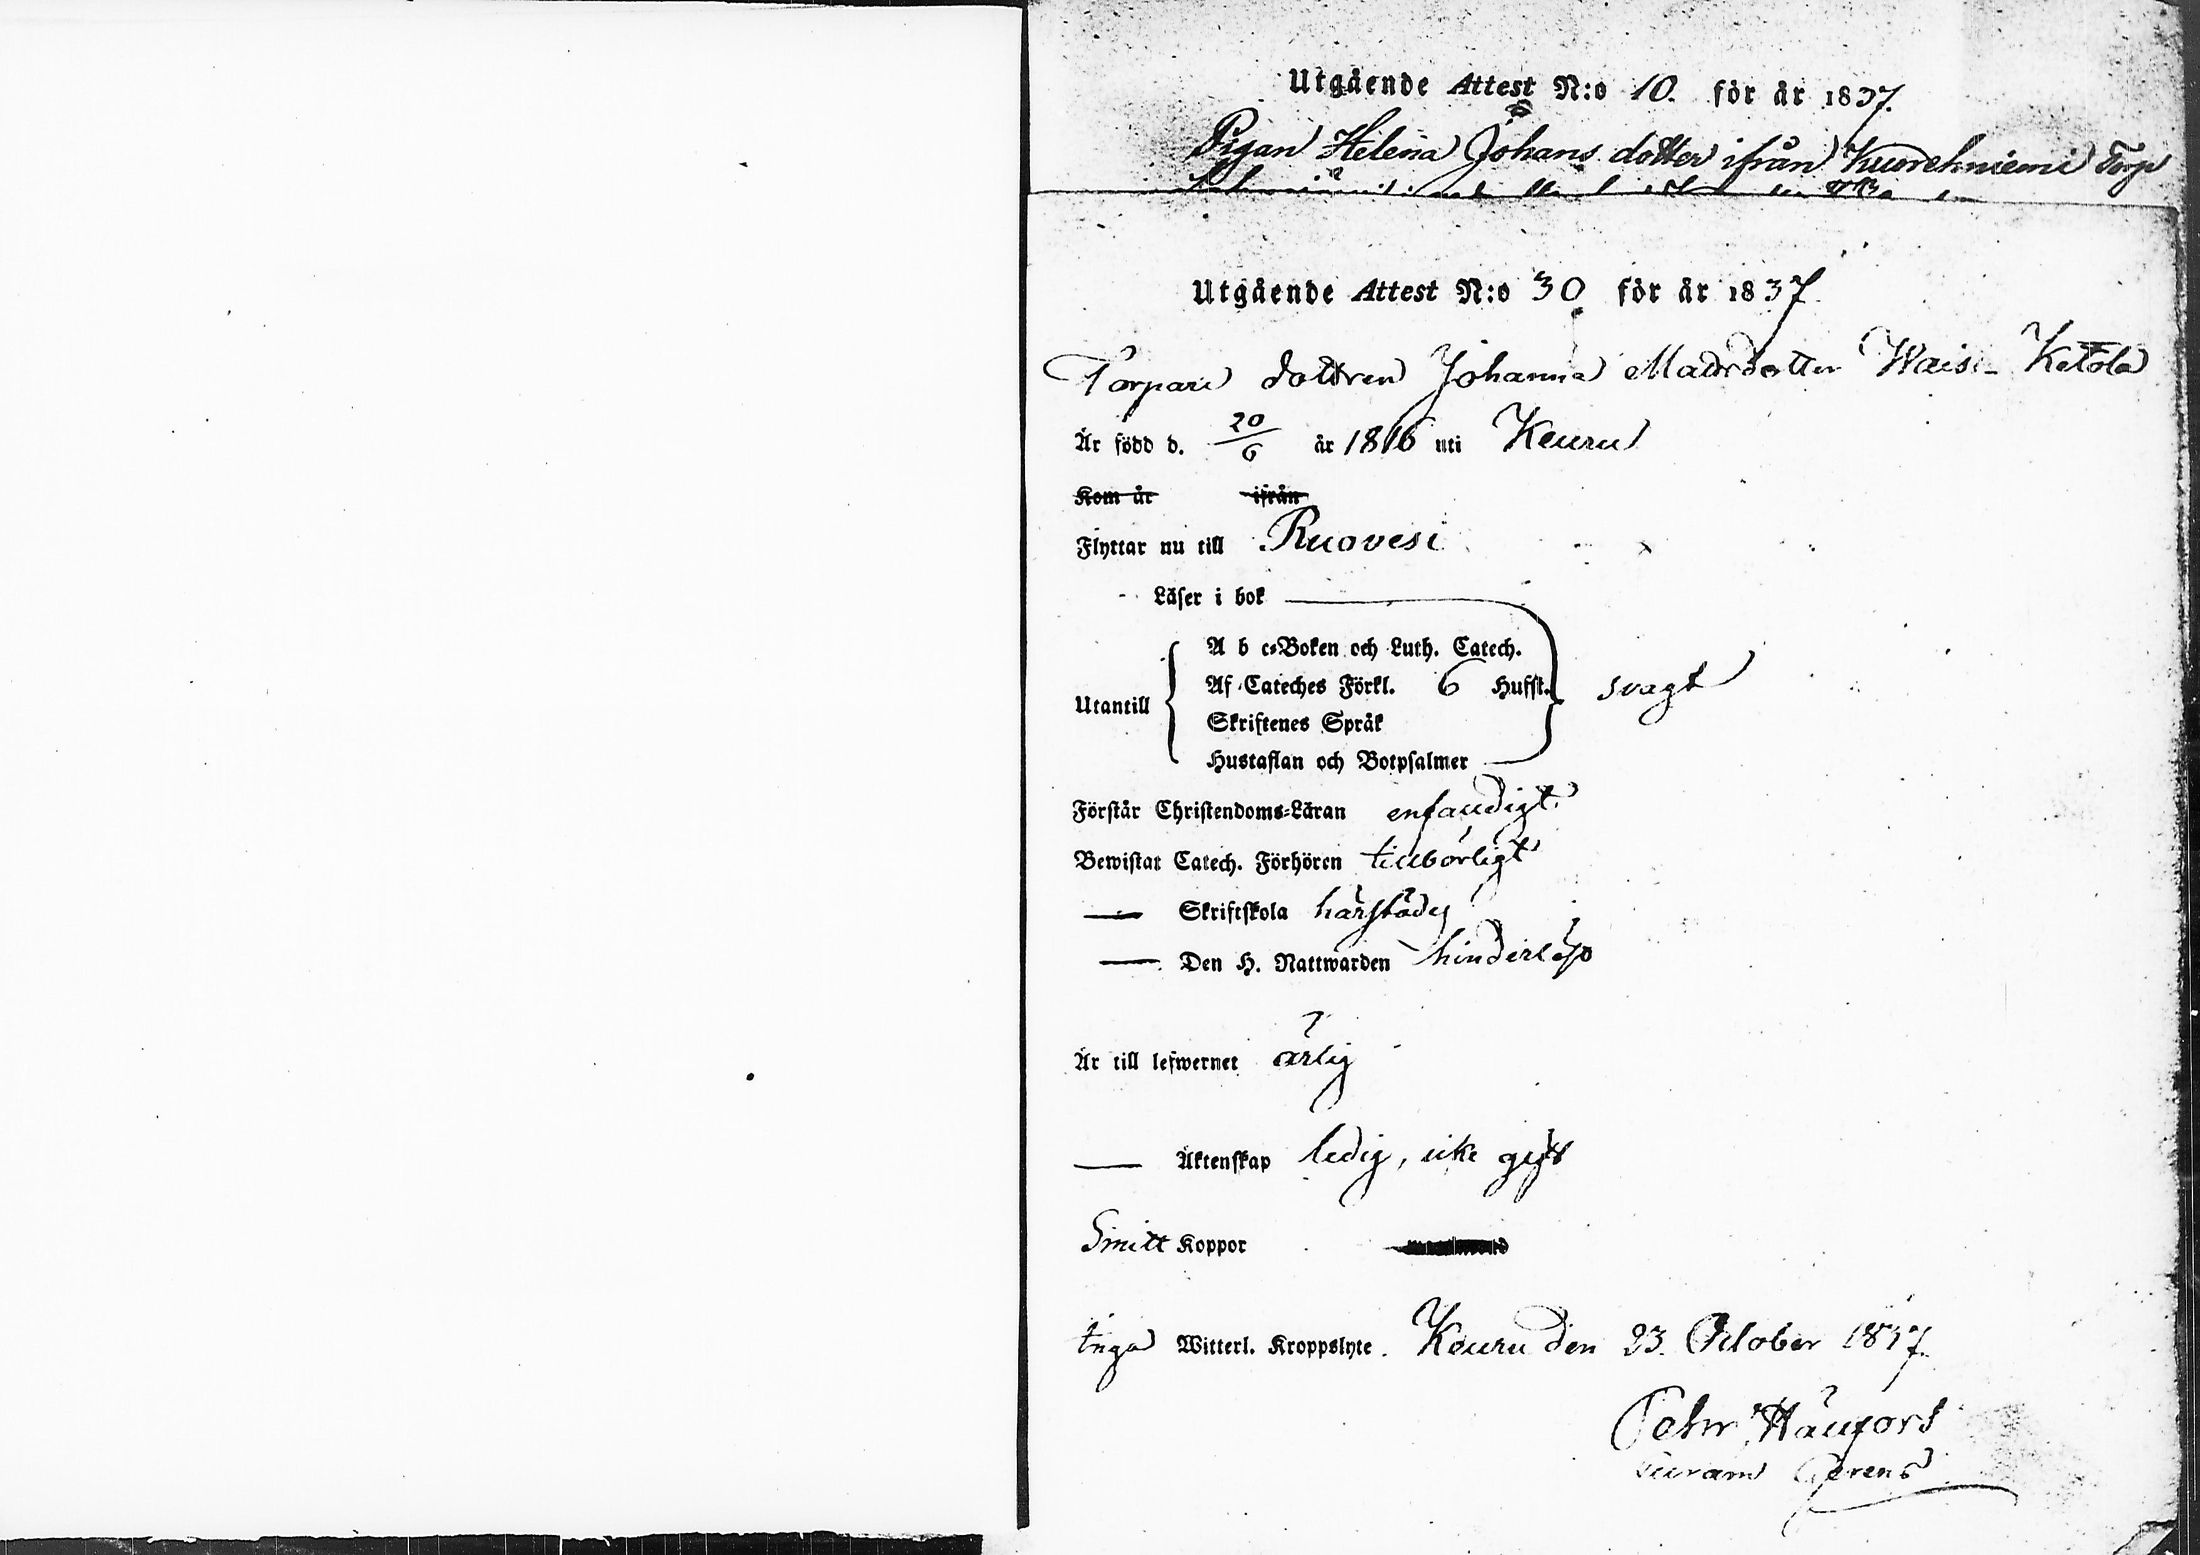 Utgående Attest N:o 10. för år 1837.
Pigan Helena Johans dotter ifrån Kuorehniemi Torp
Utgående Attest N:o 30 för år 1837.
Torpare dottren Johanna Matsdotter Ketola
Är född d. 20/6 år 1816 uti Keuru
Kom år ifrån
Flyttar nu till Ruovesi
Läser i bok
A b c-Boken och Luth. Catech.
Af Cateches Förkl. 6 Hufst. svagt
Utantill
Skriftenes Språk
Hustaflan och Botpsalmer
Förstår Christendoms-Läran enfaldigt.
Bewistat Catech. Förhören tillbörligt
— Skriftskola härstädes
— Den H. Nattwarden hinderlös
Är till lefwernet ärlig
— Äktenskap ledig, icke gift
Smitt Koppor
Inga Witterl. Kroppslyte. Keuru den 23. October 1837.
Pehr
Gerens